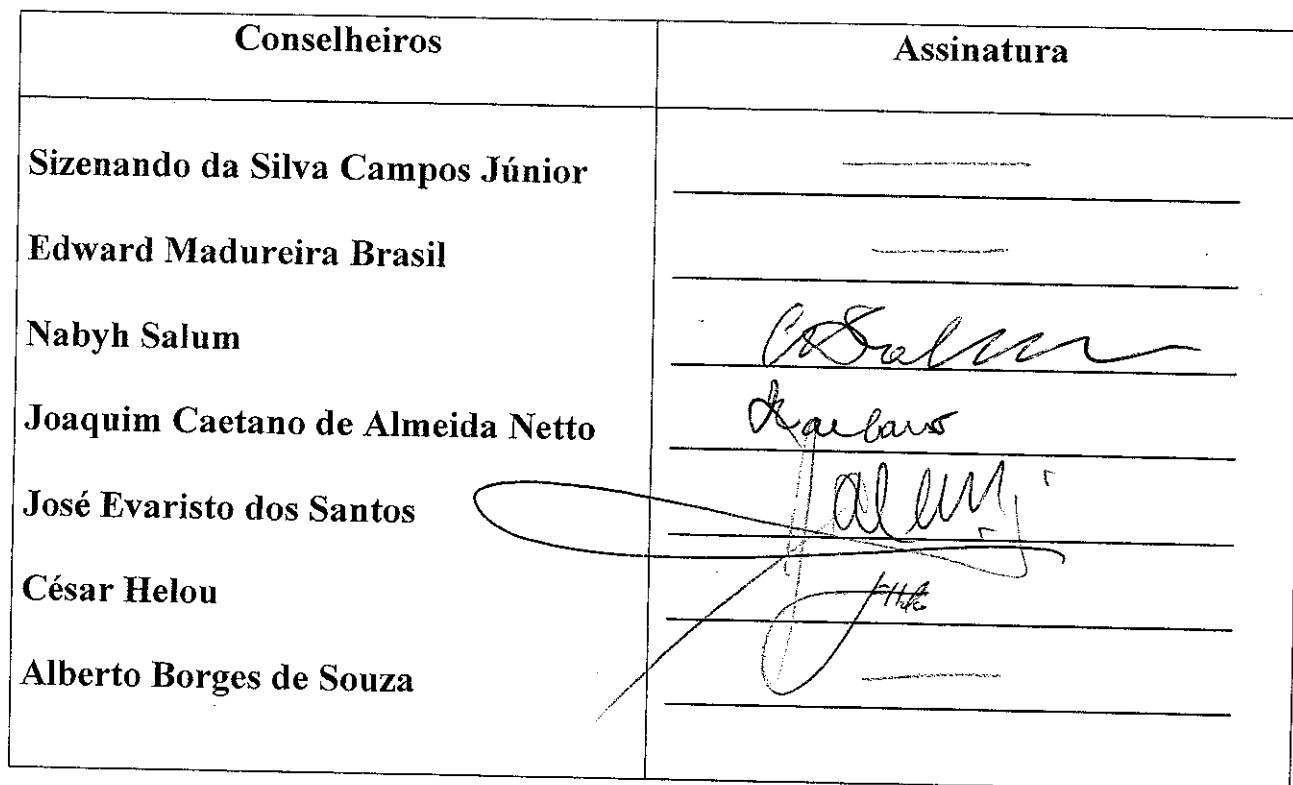 Conselheiros Assinatura
Sizenando da Silva Campos Júnior
Edward Madureira Brasil
Nabyh Salum
Joaquim Caetano de Almeida Netto
José Evaristo dos Santos
César Helou
Alberto Borges de Souza